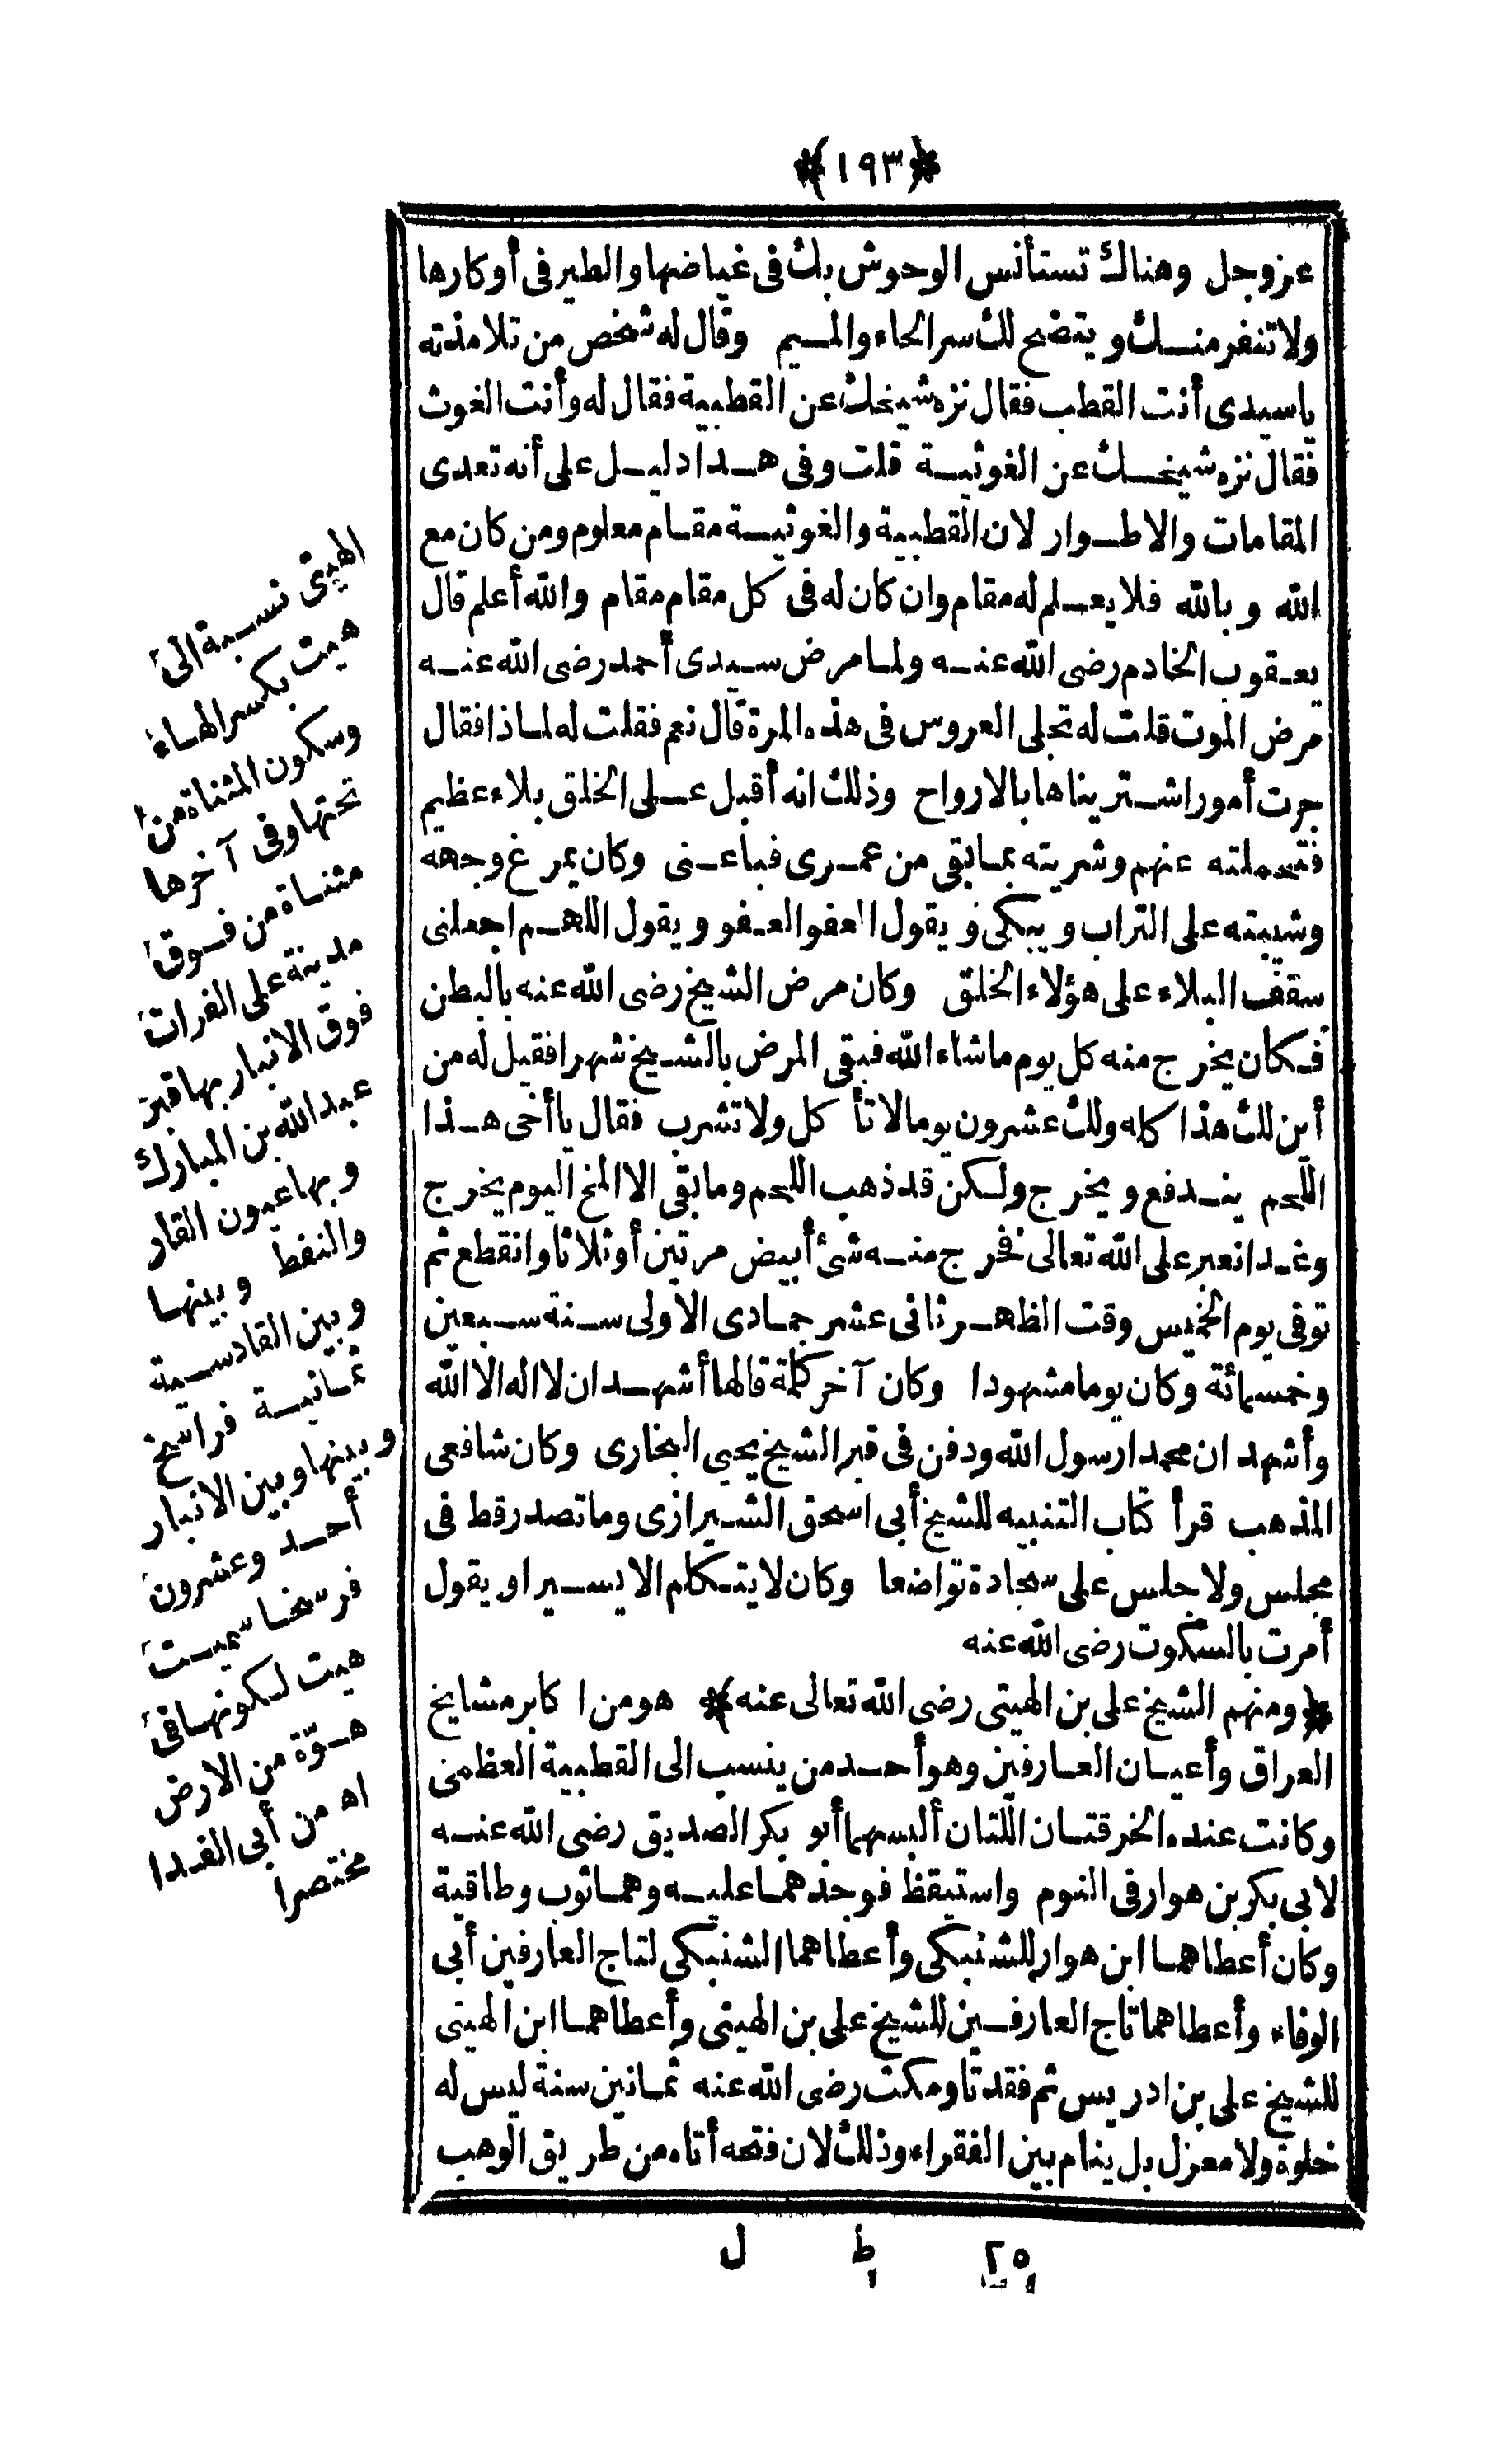 ﴿١٩٣﴾
عز وجل وهناك تستأنس الوحوش بك فى غياضها والطير فى أوكارها
ولا تنفر منك ويتضح لك سر الحاء والميم وقال له شخص من تلامذته
ياسيدى أنت القطب فقال نزه شيخك عن القطبية فقال له وأنت الغوث
فقال نزه شيخك عن الغوثية قلت وفى هذا دليل على أنه تعدى
المقامات والاطوار لان القطبية والغوثية مقام معلوم ومن كان مع
الله وبالله فلا يعلم له مقام وان كان له فى كل مقام مقام والله أعلم قال
يعقوب الخادم رضى الله عنه ولما مرض سيدى أحمد رضى الله عنه
مرض الموت قلت له تجلى العروس فى هذه المرة قال نعم فقلت له لماذا فقال
جرت أمور اشتريناها بالارواح وذلك انه أقبل على الخلق بلاء عظيم
فتحملته عنهم وشريته بما بقى من عمرى فباعنى وكان يمرغ وجهه
وشيبته على التراب ويبكى ويقول العفو العفو ويقول اللهم اجعلنى
سقف البلاء على هؤلاء الخلق وكان مرض الشيخ رضى الله عنه بالبطن
فكان يخرج منه كل يوم ماشاء الله فبقى المرض بالشيخ شهرا فقيل له من
أين لك هذا كله ولك عشرون يوما لا تأكل ولا تشرب فقال ياأخى هذا
اللحم يندفع ويخرج ولكن قد ذهب اللحم وما بقى الا المخ اليوم يخرج
وغدا نعبر على الله تعالى فخرج منه شئ أبيض مرتين أو ثلاثا وانقطع ثم
توفى يوم الخميس وقت الظهر ثانى عشر جمادى الاولى سنة سبعين
وخمسمائة وكان يوما مشهودا وكان آخر كلمة قالها أشهد ان لا اله الا الله
وأشهد ان محمدا رسول الله ودفن فى قبر الشيخ يحيى البخارى وكان شافعى
المذهب قرأ كتاب التنبيه للشيخ أبى اسحق الشيرازى وما تصدر قط فى
مجلس ولا جلس على سجادة تواضعا وكان لا يتكلم الا يسيرا ويقول
أمرت بالسكوت رضى الله عنه
﴿ومنهم الشيخ على بن الهيتى رضى الله تعالى عنه﴾ هو من اكابر مشايخ
العراق وأعيان العارفين وهو أحد من ينسب الى القطبية العظمى
وكانت عنده الخرقتان اللتان ألبسهما أبو بكر الصديق رضى الله عنه
لابى بكر بن هوار فى النوم واستيقظ فوجدهما عليه وهما ثوب وطاقية
وكان أعطاهما ابن هوار للشنبكى وأعطاهما الشنبكى لتاج العارفين أبى
الوفاء وأعطاهما تاج العارفين للشيخ على بن الهيتى وأعطاهما ابن الهيتى
للشيخ على بن ادريس ثم فقدتا ومكث رضى الله عنه ثمانين سنة ليس له
خلوة ولا معزل بل ينام بين الفقراء وذلك لان فتحه أتاه من طريق الوهب
٢٥ ط ل
الهيتى نسبة الى
هيت بكسر الهاء
وسكون المثناة من
تحتها وفى آخرها
مثناة من فوق
مدينة على الفرات
فوق الانبار بها قبر
عبد الله بن المبارك
وبها عيون القار
والنفط وبينها
وبين القادسية
ثمانية فراسخ
وبينها وبين الانبار
أحد وعشرون
فرسخا سميت
هيت لكونها فى
هوّة من الارض
اه من أبى الفدا
مختصرا